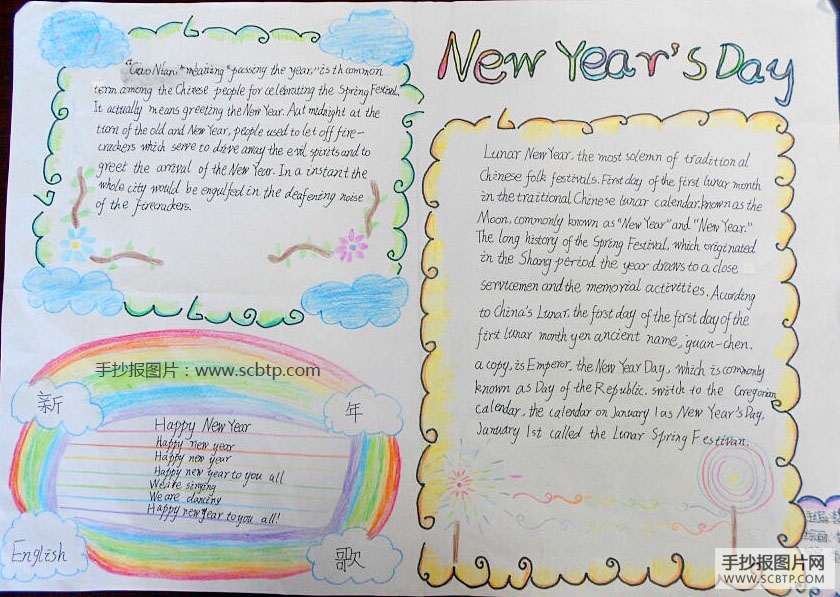 New Year's Day
"Guo Nian," meaning "passing the year," is th common
term among the Chinese people for celebrating the Spring Festival.
It actually means greeting the New Year. Aut midnight at the
turn of the old and New Year, people used to let off fire-
crackers which serve to drive away the evil spirits and to
greet the arrival of the New Year. In a instant the
whole city would be engulfed in the deafening noise
of the firecrackers.
Lunar New Year, the most solemn of traditional
Chinese folk festivals. First day of the first lunar month
in the traitional Chinese lunar calendar, known as the
Moon, commonly known as "New Year" and "New Year."
The long history of the Spring Festival, which originated
in the Shang period the year draws to a close
servicemen and the memorial activities. According
to China's Lunar, the first day of the forst day of the
first lunar month yen ancient name, yuan-chen,
a copy, is Emperor, the New Year Day, which is commonly
known as Day of the Republic. switch to the Gregorian
calendar, the calendar on January 1 as New Year's Day,
January 1st called the Lunar Spring Festivan.
手抄报图片:www.scbtp.com
新 年
Happy New Year
happy new year
Happy new year
Happy new year to you all
We are singing
We are dancing
Happy new year to you all!
English 歌
手抄报图片网
WWW.SCBTP.COM